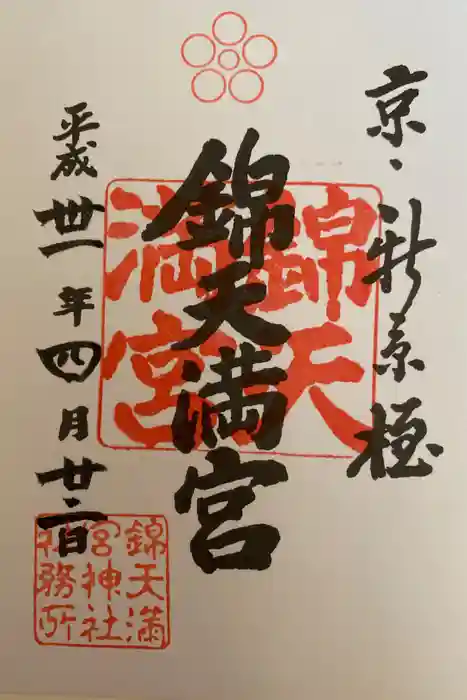 京・新京極
錦天満宮
錦天
満宮
平成丗一年四月廿二日
錦天満
宮神社
社務所